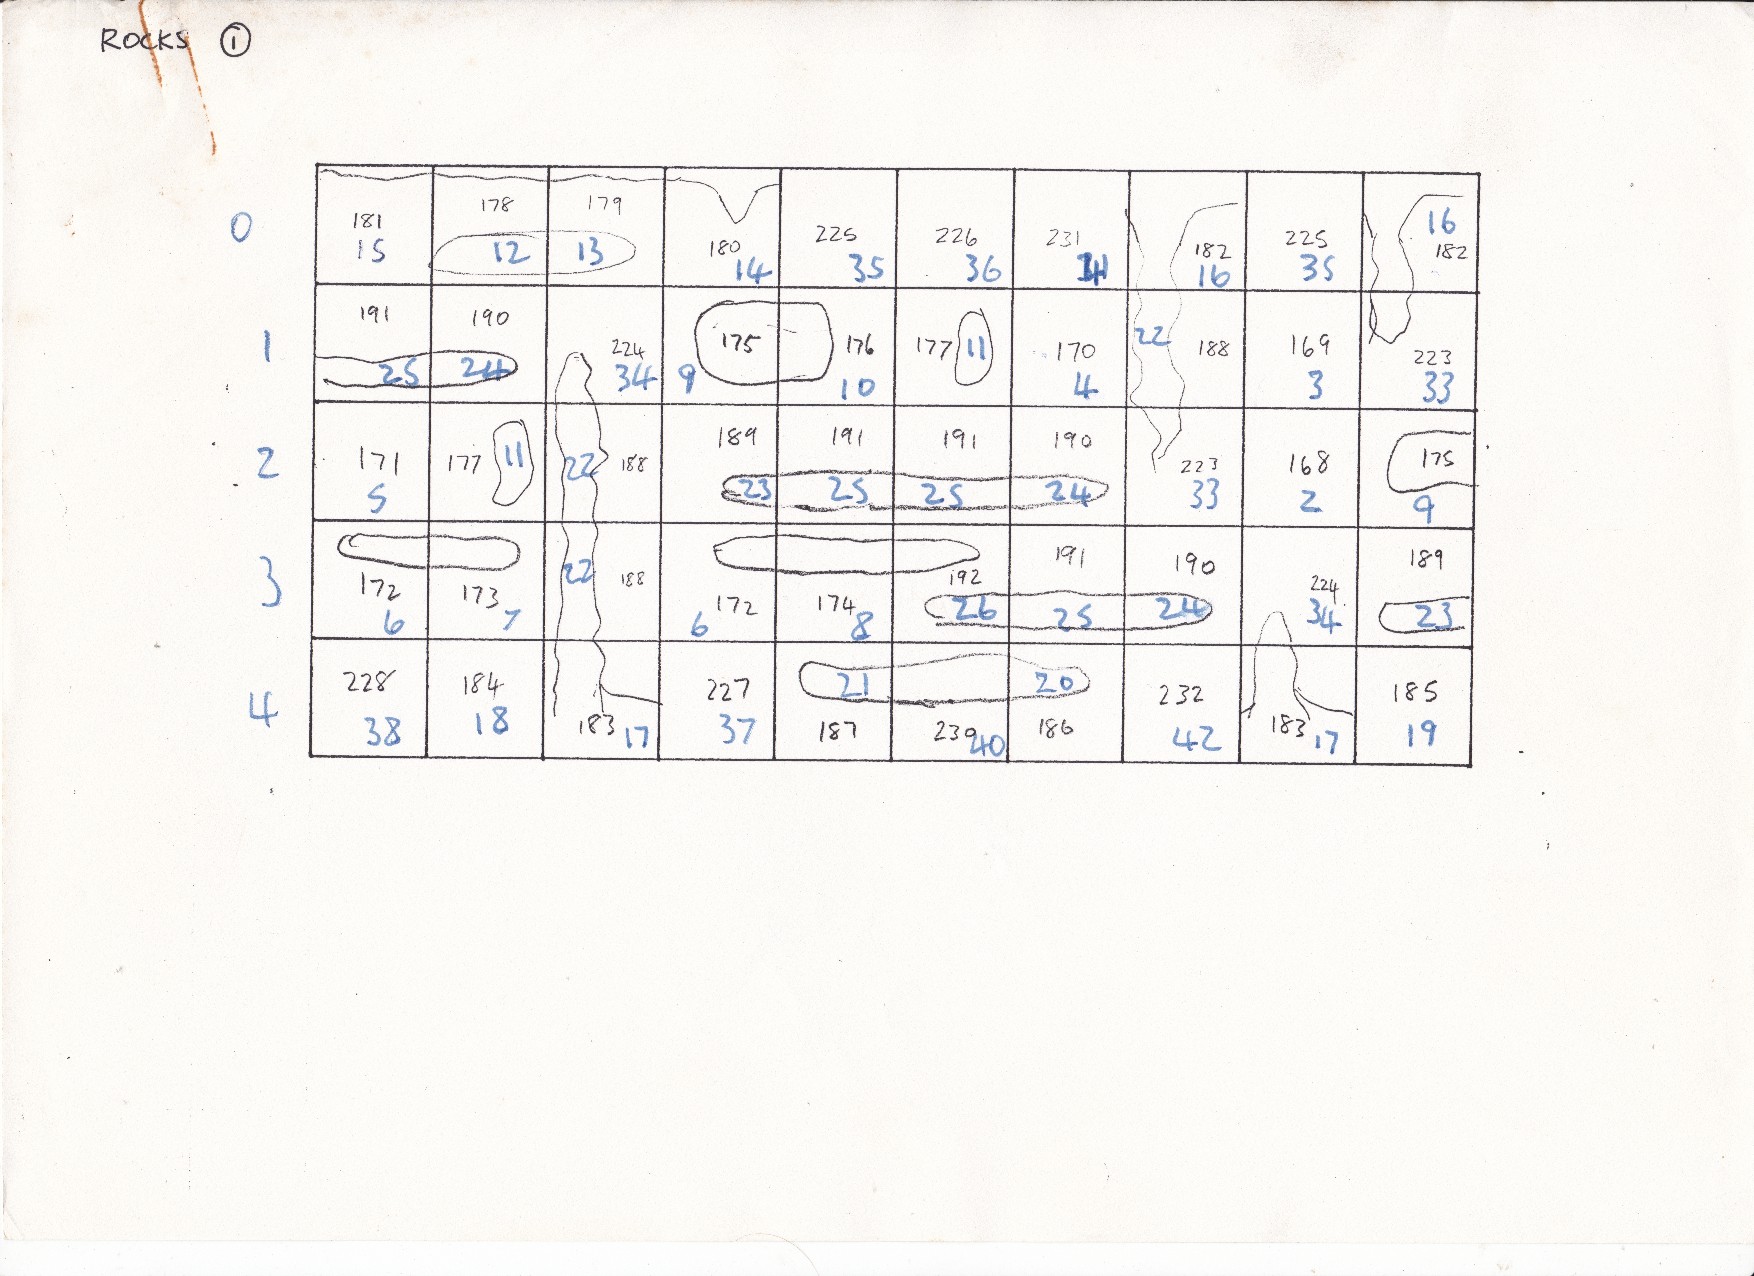 ROCKS 1
0 181 178 179 180 225 226 231 182 225 16 182
15 12 13 14 35 36 16 35
1 191 190 224 175 176 177 11 170 22 188 169 223
25 24 34 9 10 4 3 33
2 171 177 11 22 188 189 191 191 190 223 168 175
5 23 25 25 24 33 2 9
3 172 173 22 188 172 174 192 191 190 224 189
6 7 6 8 26 25 24 34 23
4 228 184 183 227 21 20 232 183 185
38 18 17 37 187 40 186 42 17 19